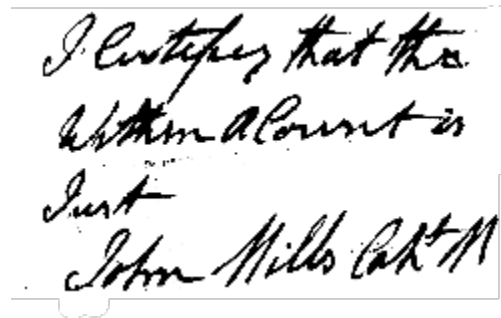 I Certifey that the
Within Acount is
Just
John Mills Capt M